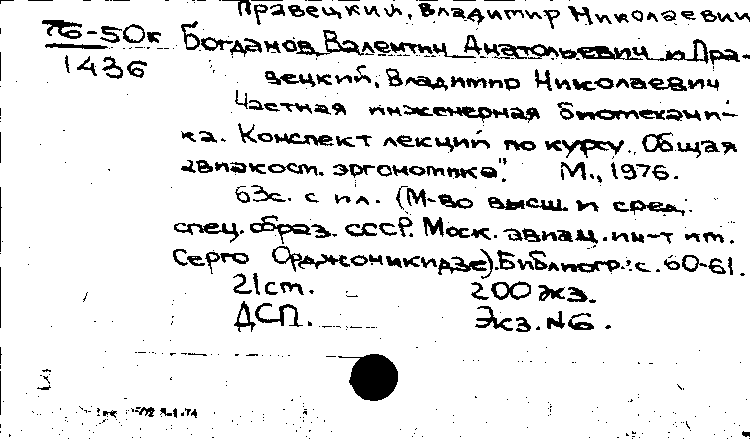 Правецкий, Владимир Николаевич
76-50к
1436
Богданов Валентин Анатольевич и Пра-
вецкий, Владимир Николаевич
Частная инженерная биомехани-
ка. Конспект лекций по курсу „Общая
авиакосм. эргономика". М., 1976.
63с. с ил. (М-во высш. и сред.
спец. образ. СССР. Моск. авиац. ин-т им.
Серго Орджоникидзе). Библиогр.: с. 60-61.
21см. 200 экз.
ДСП. Экз. №6.